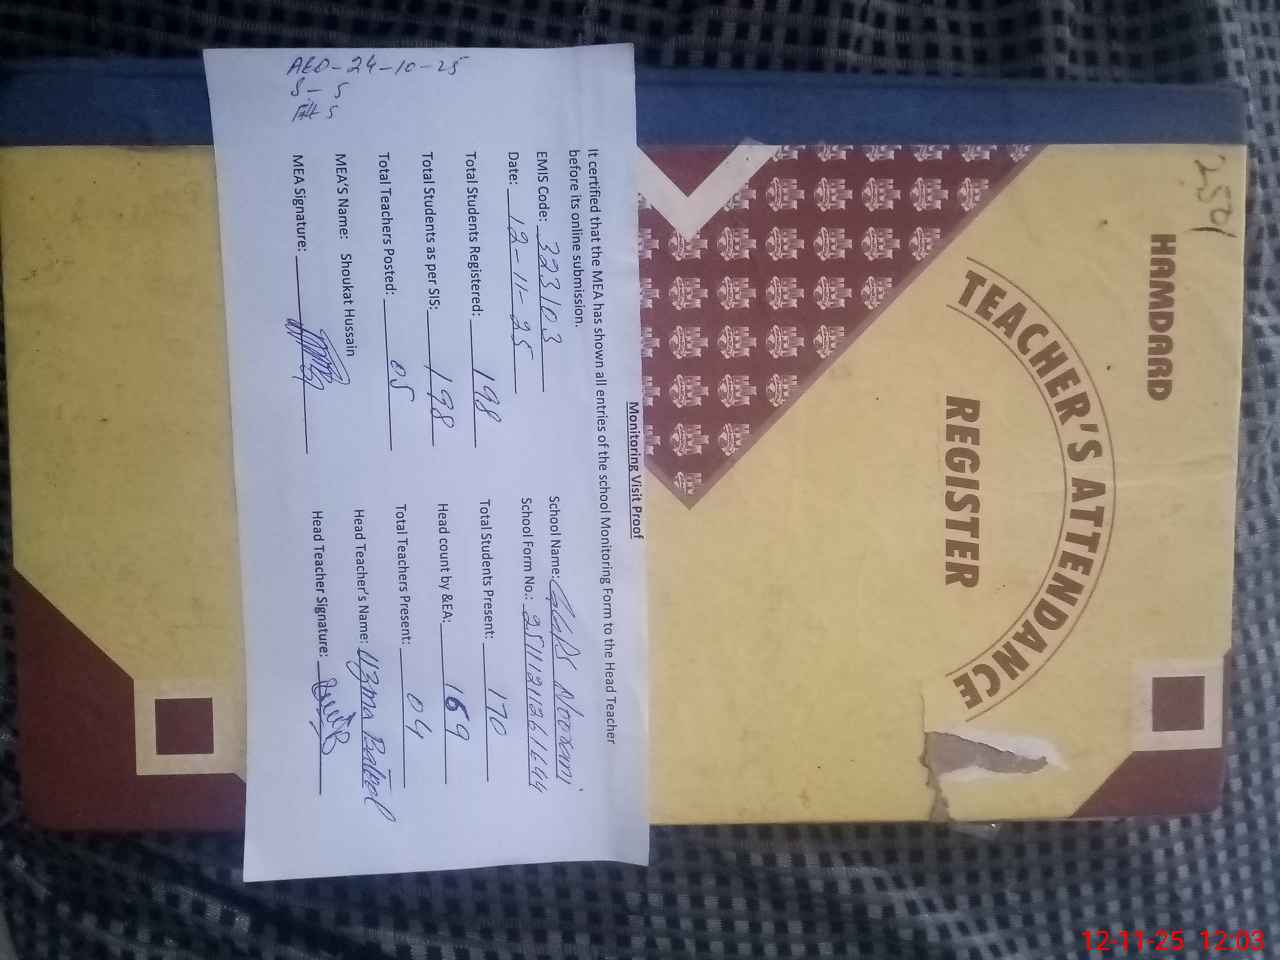 Monitoring Visit Proof
It certified that the MEA has shown all entries of the school Monitoring Form to the Head Teacher
before its online submission.
EMIS Code: 323103 School Name: GGPS Noorani
Date: 12-11-25 School Form No.: 2511121261644
Total Students Registered: 198 Total Students Present: 170
Total Students as per SIS: 198 Head count by &EA: 169
Total Teachers Posted: 05 Total Teachers Present: 04
MEA'S Name: Shoukat Hussain Head Teacher's Name: Uzma Batool
MEA Signature: Head Teacher Signature:
AEO-24-10-25
S- 5
HAMDARD
TEACHER'S ATTENDANCE
REGISTER
2501
12-11-25 12:03